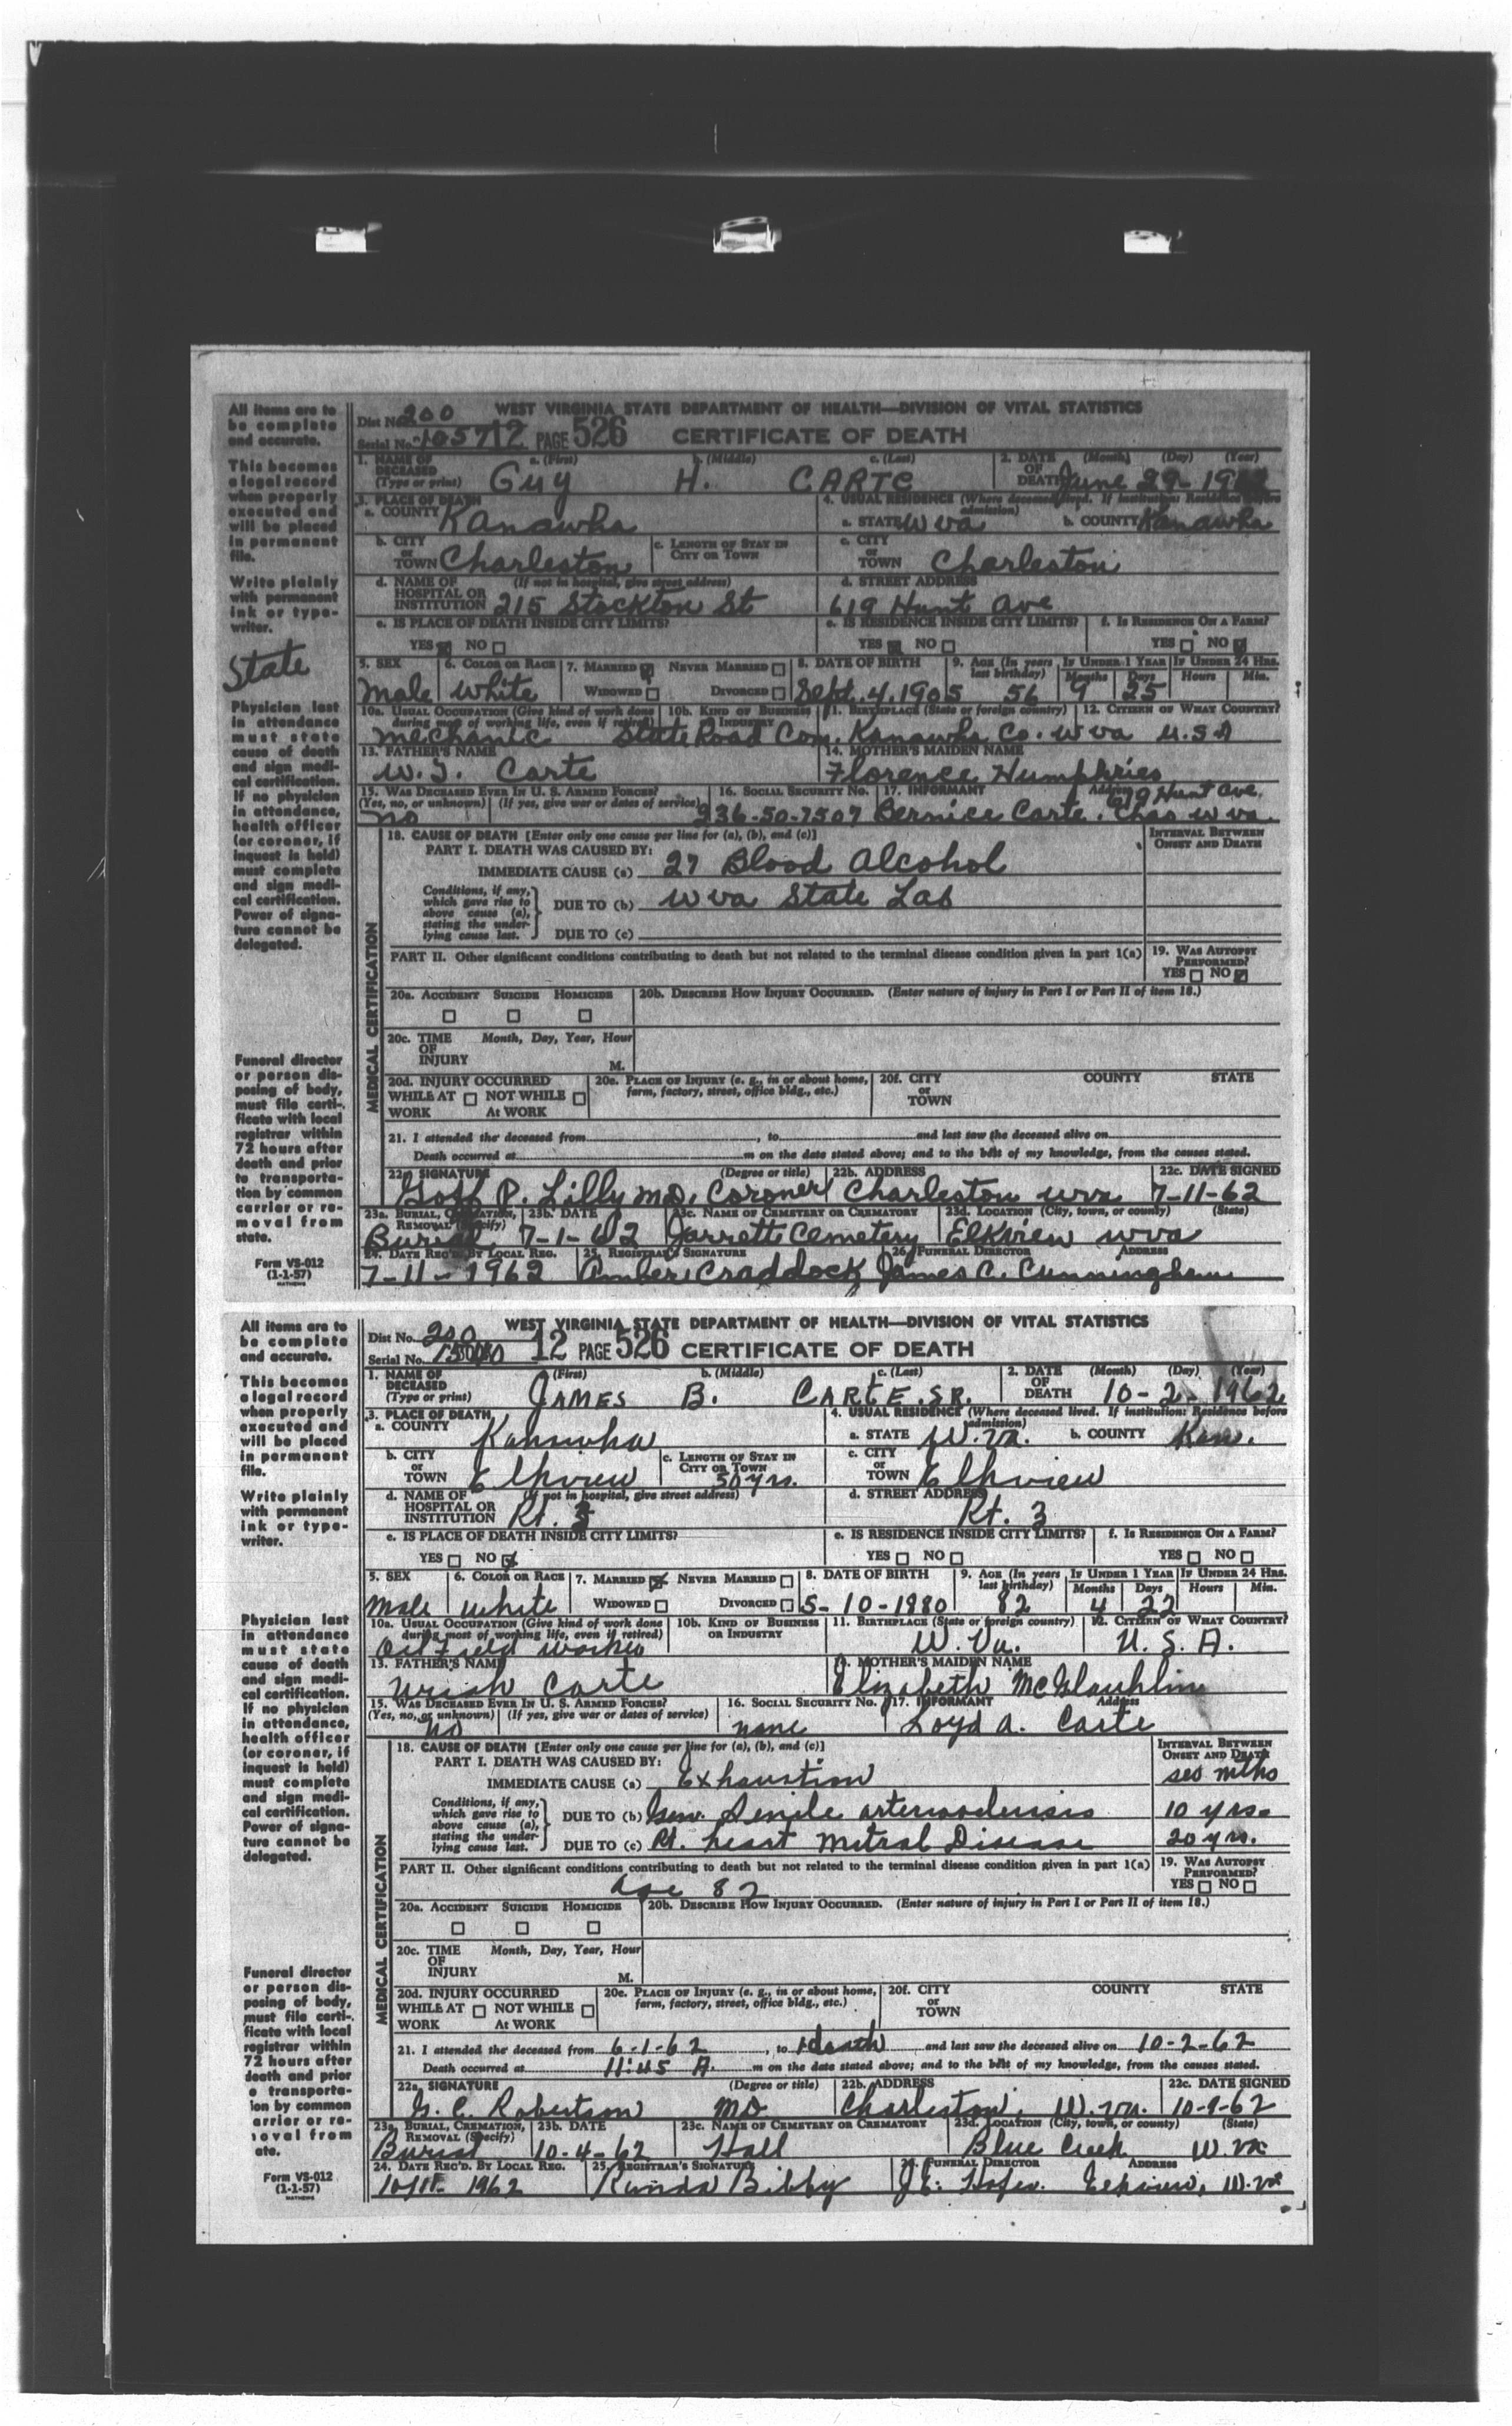 All items are to be complete and accurate.
This becomes a legal record when properly executed and will be placed in permanent file.
Write plainly with permanent ink or typewriter.
State
Physician last in attendance must state cause of death and sign medical certification. If no physician in attendance, health officer (or coroner, if inquest is held) must complete and sign medical certification. Power of signature cannot be delegated.
Funeral director or person disposing of body, must file certificate with local registrar within 72 hours after death and prior to transportation by common carrier or removal from state.
Form VS-012
(1-1-57)
WEST VIRGINIA STATE DEPARTMENT OF HEALTH—DIVISION OF VITAL STATISTICS
Dist No. 200
Serial No. 10571 12 PAGE 526 CERTIFICATE OF DEATH
1. NAME OF DECEASED (Type or print) a. (First) b. (Middle) c. (Last) Guy H. CARTE
2. DATE OF DEATH (Month) (Day) (Year) June 29-1962
3. PLACE OF DEATH a. COUNTY Kanawha
4. USUAL RESIDENCE (Where deceased lived. If institution: Residence before admission) a. STATE W va b. COUNTY Kanawha
b. CITY or TOWN Charleston c. LENGTH OF STAY IN CITY OR TOWN
c. CITY or TOWN Charleston
d. NAME OF HOSPITAL OR INSTITUTION (If not in hospital, give street address) 215 Stockton St
d. STREET ADDRESS 619 Hunt Ave
e. IS PLACE OF DEATH INSIDE CITY LIMITS? YES NO
e. IS RESIDENCE INSIDE CITY LIMITS? YES NO f. IS RESIDENCE ON A FARM? YES NO
5. SEX Male 6. COLOR OR RACE White 7. MARRIED NEVER MARRIED WIDOWED DIVORCED 8. DATE OF BIRTH Sept. 4. 1905 9. AGE (In years last birthday) 56 IF UNDER 1 YEAR Months 9 Days 25 IF UNDER 24 HRS. Hours Min.
10a. USUAL OCCUPATION (Give kind of work done during most of working life, even if retired) Mechanic 10b. KIND OF BUSINESS OR INDUSTRY State Road Com. 11. BIRTHPLACE (State or foreign country) Kanawha Co. W va 12. CITIZEN OF WHAT COUNTRY? U.S A
13. FATHER'S NAME W. J. Carte 14. MOTHER'S MAIDEN NAME Florence Humphries
15. WAS DECEASED EVER IN U. S. ARMED FORCES? (Yes, no, or unknown) (If yes, give war or dates of service) no 16. SOCIAL SECURITY NO. 236-50-7507 17. INFORMANT Address Bernice Carte. 619 Hunt Ave. Chas W va.
MEDICAL CERTIFICATION
18. CAUSE OF DEATH [Enter only one cause per line for (a), (b), and (c)] INTERVAL BETWEEN ONSET AND DEATH
PART I. DEATH WAS CAUSED BY:
IMMEDIATE CAUSE (a) 27 Blood Alcohol
Conditions, if any, which gave rise to above cause (a), stating the underlying cause last. DUE TO (b) W va State Lab
DUE TO (c)
PART II. Other significant conditions contributing to death but not related to the terminal disease condition given in part 1(a) 19. WAS AUTOPSY PERFORMED? YES NO
20a. ACCIDENT SUICIDE HOMICIDE 20b. DESCRIBE HOW INJURY OCCURRED. (Enter nature of injury in Part I or Part II of item 18.)
20c. TIME OF INJURY Month, Day, Year, Hour M.
20d. INJURY OCCURRED WHILE AT WORK NOT WHILE AT WORK 20e. PLACE OF INJURY (e. g., in or about home, farm, factory, street, office bldg., etc.) 20f. CITY or TOWN COUNTY STATE
21. I attended the deceased from , to and last saw the deceased alive on
Death occurred at m on the date stated above; and to the best of my knowledge, from the causes stated.
22a. SIGNATURE (Degree or title) Goff P. Lilly M.D. Coroner 22b. ADDRESS Charleston W va 22c. DATE SIGNED 7-11-62
23a. BURIAL, CREMATION, REMOVAL (Specify) Burial 23b. DATE 7-1-62 23c. NAME OF CEMETERY OR CREMATORY Jarrett Cemetery 23d. LOCATION (City, town, or county) (State) Elkview W va
24. DATE REC'D. BY LOCAL REG. 7-11-1962 25. REGISTRAR'S SIGNATURE Amber Craddock 26. FUNERAL DIRECTOR ADDRESS James C. Cunningham
All items are to be complete and accurate.
This becomes a legal record when properly executed and will be placed in permanent file.
Write plainly with permanent ink or typewriter.
Physician last in attendance must state cause of death and sign medical certification. If no physician in attendance, health officer (or coroner, if inquest is held) must complete and sign medical certification. Power of signature cannot be delegated.
Funeral director or person disposing of body, must file certificate with local registrar within 72 hours after death and prior o transportaion by common arrier or removal from ate.
Form VS-012
(1-1-57)
WEST VIRGINIA STATE DEPARTMENT OF HEALTH—DIVISION OF VITAL STATISTICS
Dist No. 200
Serial No. 12 PAGE 526 CERTIFICATE OF DEATH
1. NAME OF DECEASED (Type or print) (First) b. (Middle) c. (Last) JAMES B. CARTE, SR.
2. DATE OF DEATH (Month) (Day) (Year) 10-2-1962
3. PLACE OF DEATH a. COUNTY Kanawha
4. USUAL RESIDENCE (Where deceased lived. If institution: Residence before admission) a. STATE W. Va. b. COUNTY Kan.
b. CITY or TOWN Elkview c. LENGTH OF STAY IN CITY OR TOWN 50 yrs.
c. CITY or TOWN Elkview
d. NAME OF HOSPITAL OR INSTITUTION (If not in hospital, give street address) Rt. 3
d. STREET ADDRESS Rt. 3
e. IS PLACE OF DEATH INSIDE CITY LIMITS? YES NO
e. IS RESIDENCE INSIDE CITY LIMITS? YES NO f. IS RESIDENCE ON A FARM? YES NO
5. SEX Male 6. COLOR OR RACE White 7. MARRIED NEVER MARRIED WIDOWED DIVORCED 8. DATE OF BIRTH 5-10-1880 9. AGE (In years last birthday) 82 IF UNDER 1 YEAR Months 4 Days 22 IF UNDER 24 HRS. Hours Min.
10a. USUAL OCCUPATION (Give kind of work done during most of working life, even if retired) Oil Field Worker 10b. KIND OF BUSINESS OR INDUSTRY 11. BIRTHPLACE (State or foreign country) W. Va. 12. CITIZEN OF WHAT COUNTRY? U. S. A.
13. FATHER'S NAME Uriah Carte 14. MOTHER'S MAIDEN NAME Elizabeth McGlauphlin
15. WAS DECEASED EVER IN U. S. ARMED FORCES? (Yes, no, or unknown) (If yes, give war or dates of service) no 16. SOCIAL SECURITY NO. none 17. INFORMANT Address Loyd A. Carte
MEDICAL CERTIFICATION
18. CAUSE OF DEATH [Enter only one cause per line for (a), (b), and (c)] INTERVAL BETWEEN ONSET AND DEATH
PART I. DEATH WAS CAUSED BY:
IMMEDIATE CAUSE (a) Exhaustion mths
Conditions, if any, which gave rise to above cause (a), stating the underlying cause last. DUE TO (b) Gen. Senile arteriosclerosis 10 yrs.
DUE TO (c) Rt. heart Mitral Disease 20 yrs.
PART II. Other significant conditions contributing to death but not related to the terminal disease condition given in part 1(a) Age 82 19. WAS AUTOPSY PERFORMED? YES NO
20a. ACCIDENT SUICIDE HOMICIDE 20b. DESCRIBE HOW INJURY OCCURRED. (Enter nature of injury in Part I or Part II of item 18.)
20c. TIME OF INJURY Month, Day, Year, Hour M.
20d. INJURY OCCURRED WHILE AT WORK NOT WHILE AT WORK 20e. PLACE OF INJURY (e. g., in or about home, farm, factory, street, office bldg., etc.) 20f. CITY or TOWN COUNTY STATE
21. I attended the deceased from 6-1-62, to death and last saw the deceased alive on 10-2-62
Death occurred at 11:45 A. m on the date stated above; and to the best of my knowledge, from the causes stated.
22a. SIGNATURE (Degree or title) G. C. Robertson MD. 22b. ADDRESS Charleston, W. va. 22c. DATE SIGNED 10-9-62
23a. BURIAL, CREMATION, REMOVAL (Specify) Burial 23b. DATE 10-4-62 23c. NAME OF CEMETERY OR CREMATORY Hall 23d. LOCATION (City, town, or county) (State) Blue Creek W. va
24. DATE REC'D. BY LOCAL REG. 1962 25. REGISTRAR'S SIGNATURE Bibby 26. FUNERAL DIRECTOR ADDRESS J. E. Elkview, W. va